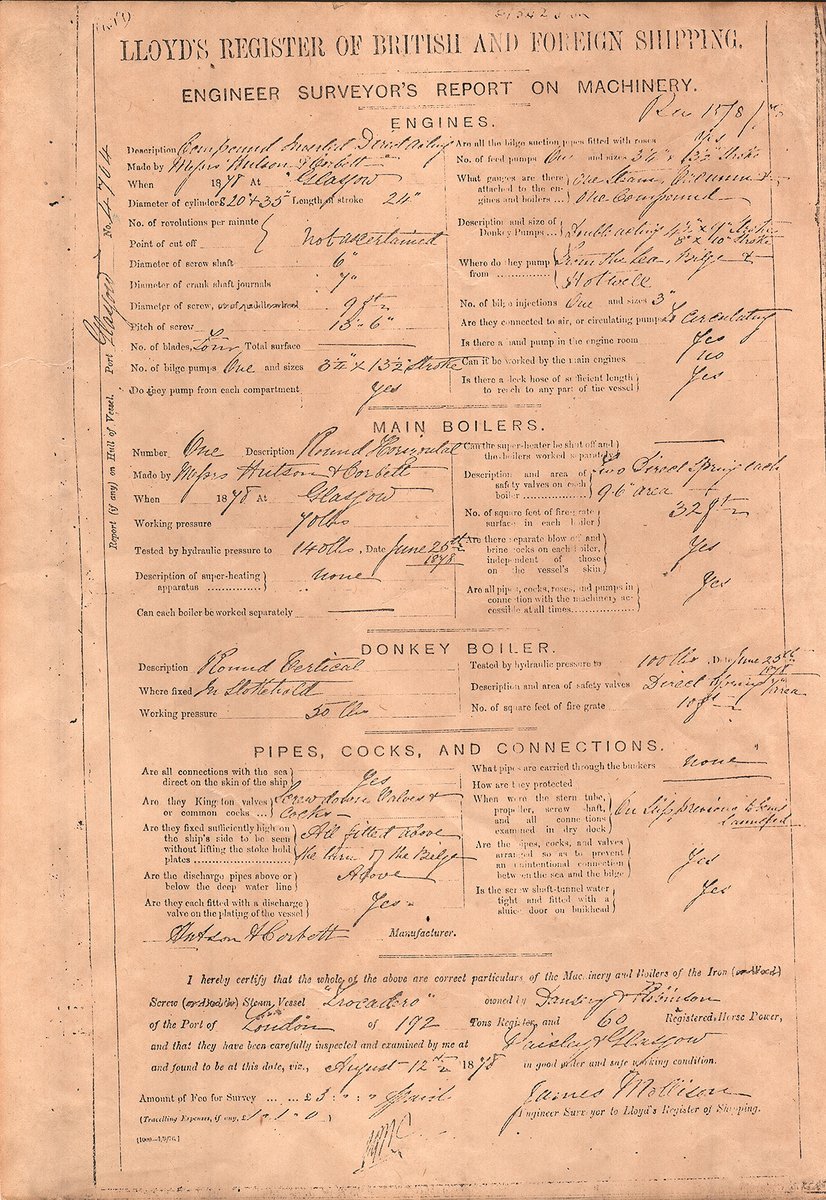 LLOYD'S REGISTER OF BRITISH AND FOREIGN SHIPPING.
ENGINEER SURVEYOR'S REPORT ON MACHINERY.
Rec 15/8/78
No. 4704
Port Glasgow
Report (if any) on Hull of Vessel.
ENGINES.
Description Compound Inverted Direct acting
Made by Messrs Hutson & Corbett
When 1878 At Glasgow
Diameter of cylinders 20 & 35" Length of stroke 24"
No. of revolutions per minute
Point of cut off
not ascertained
Diameter of screw shaft 6"
Diameter of crank shaft journals 7"
Diameter of screw, or of paddle wheel 9 ft
Pitch of screw 13 " 6"
No. of blades, Four Total surface
No. of bilge pumps One and sizes 3½" x 13½" Stroke
Do they pump from each compartment Yes
Are all the bilge suction pipes fitted with roses Yes
No. of feed pumps One and sizes 3½" x 13½" Stroke
What gauges are there attached to the engines and boilers One Steam, One Vacuum & One Compound
Description and size of Donkey Pumps Double acting 4½" x 9" Stroke
8" x 10" Stroke
Where do they pump from From the Sea, Bilge & Hotwell
No. of bilge injections One and sizes 3"
Are they connected to air, or circulating pumps To Circulating
Is there a hand pump in the engine room Yes
Can it be worked by the main engines no
Is there a deck hose of sufficient length to reach to any part of the vessel Yes
MAIN BOILERS.
Number One Description Round Horizontal
Made by Messrs Hutson & Corbett
When 1878 At Glasgow
Working pressure 70 lbs
Tested by hydraulic pressure to 140 lbs, Date June 25th 1878
Description of super-heating apparatus none
Can each boiler be worked separately
Can the super-heater be shut off and the boilers worked separately
Description and area of safety valves on each boiler Two Direct Spring each 9.6" area
No. of square feet of fire grate surface in each boiler 32 ft
Are there separate blow off and brine cocks on each boiler, independent of those on the vessel's skin Yes
Are all pipes, cocks, roses, and pumps in connection with the machinery accessible at all times Yes
DONKEY BOILER.
Description Round Vertical
Where fixed In Stokehold
Working pressure 50 lbs
Tested by hydraulic pressure to 100 lbs, Date June 25th 1878
Description and area of safety valves Direct Spring 7" Area
No. of square feet of fire grate 10 ft
PIPES, COCKS, AND CONNECTIONS.
Are all connections with the sea direct on the skin of the ship Yes
Are they Kingston valves or common cocks Screw down Valves & Cocks
Are they fixed sufficiently high on the ship's side to be seen without lifting the stoke hold plates All fitted above the turn of the Bilge
Are the discharge pipes above or below the deep water line Above
Are they each fitted with a discharge valve on the plating of the vessel Yes
What pipes are carried through the bunkers none
How are they protected
When were the stern tube, propeller, screw shaft, and all connections examined in dry dock On Slip previous to being Launched
Are the pipes, cocks, and valves arranged so as to prevent an unintentional connection between the sea and the bilge Yes
Is the screw shaft-tunnel water tight and fitted with a sluice door on bulkhead Yes
Hutson & Corbett Manufacturer.
I hereby certify that the whole of the above are correct particulars of the Machinery and Boilers of the Iron (or Wood)
Screw (or Paddle) Steam Vessel "Trocadero" owned by Dansey & Robinson
of the Port of London of 192 Tons Register, and 60 Registered Horse Power,
and that they have been carefully inspected and examined by me at Paisley & Glasgow
and found to be at this date, viz., August 12th 1878 in good order and safe working condition.
Amount of Fee for Survey ... ... £3 " " " Paid
James Mollison
(Travelling Expenses, if any, £1.1.0)
Engineer Surveyor to Lloyd's Register of Shipping.